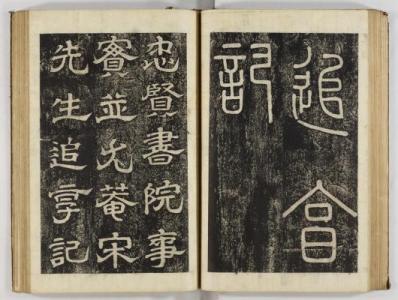 追亯
記
忠賢書院事
實並尤菴宋
先生追享記